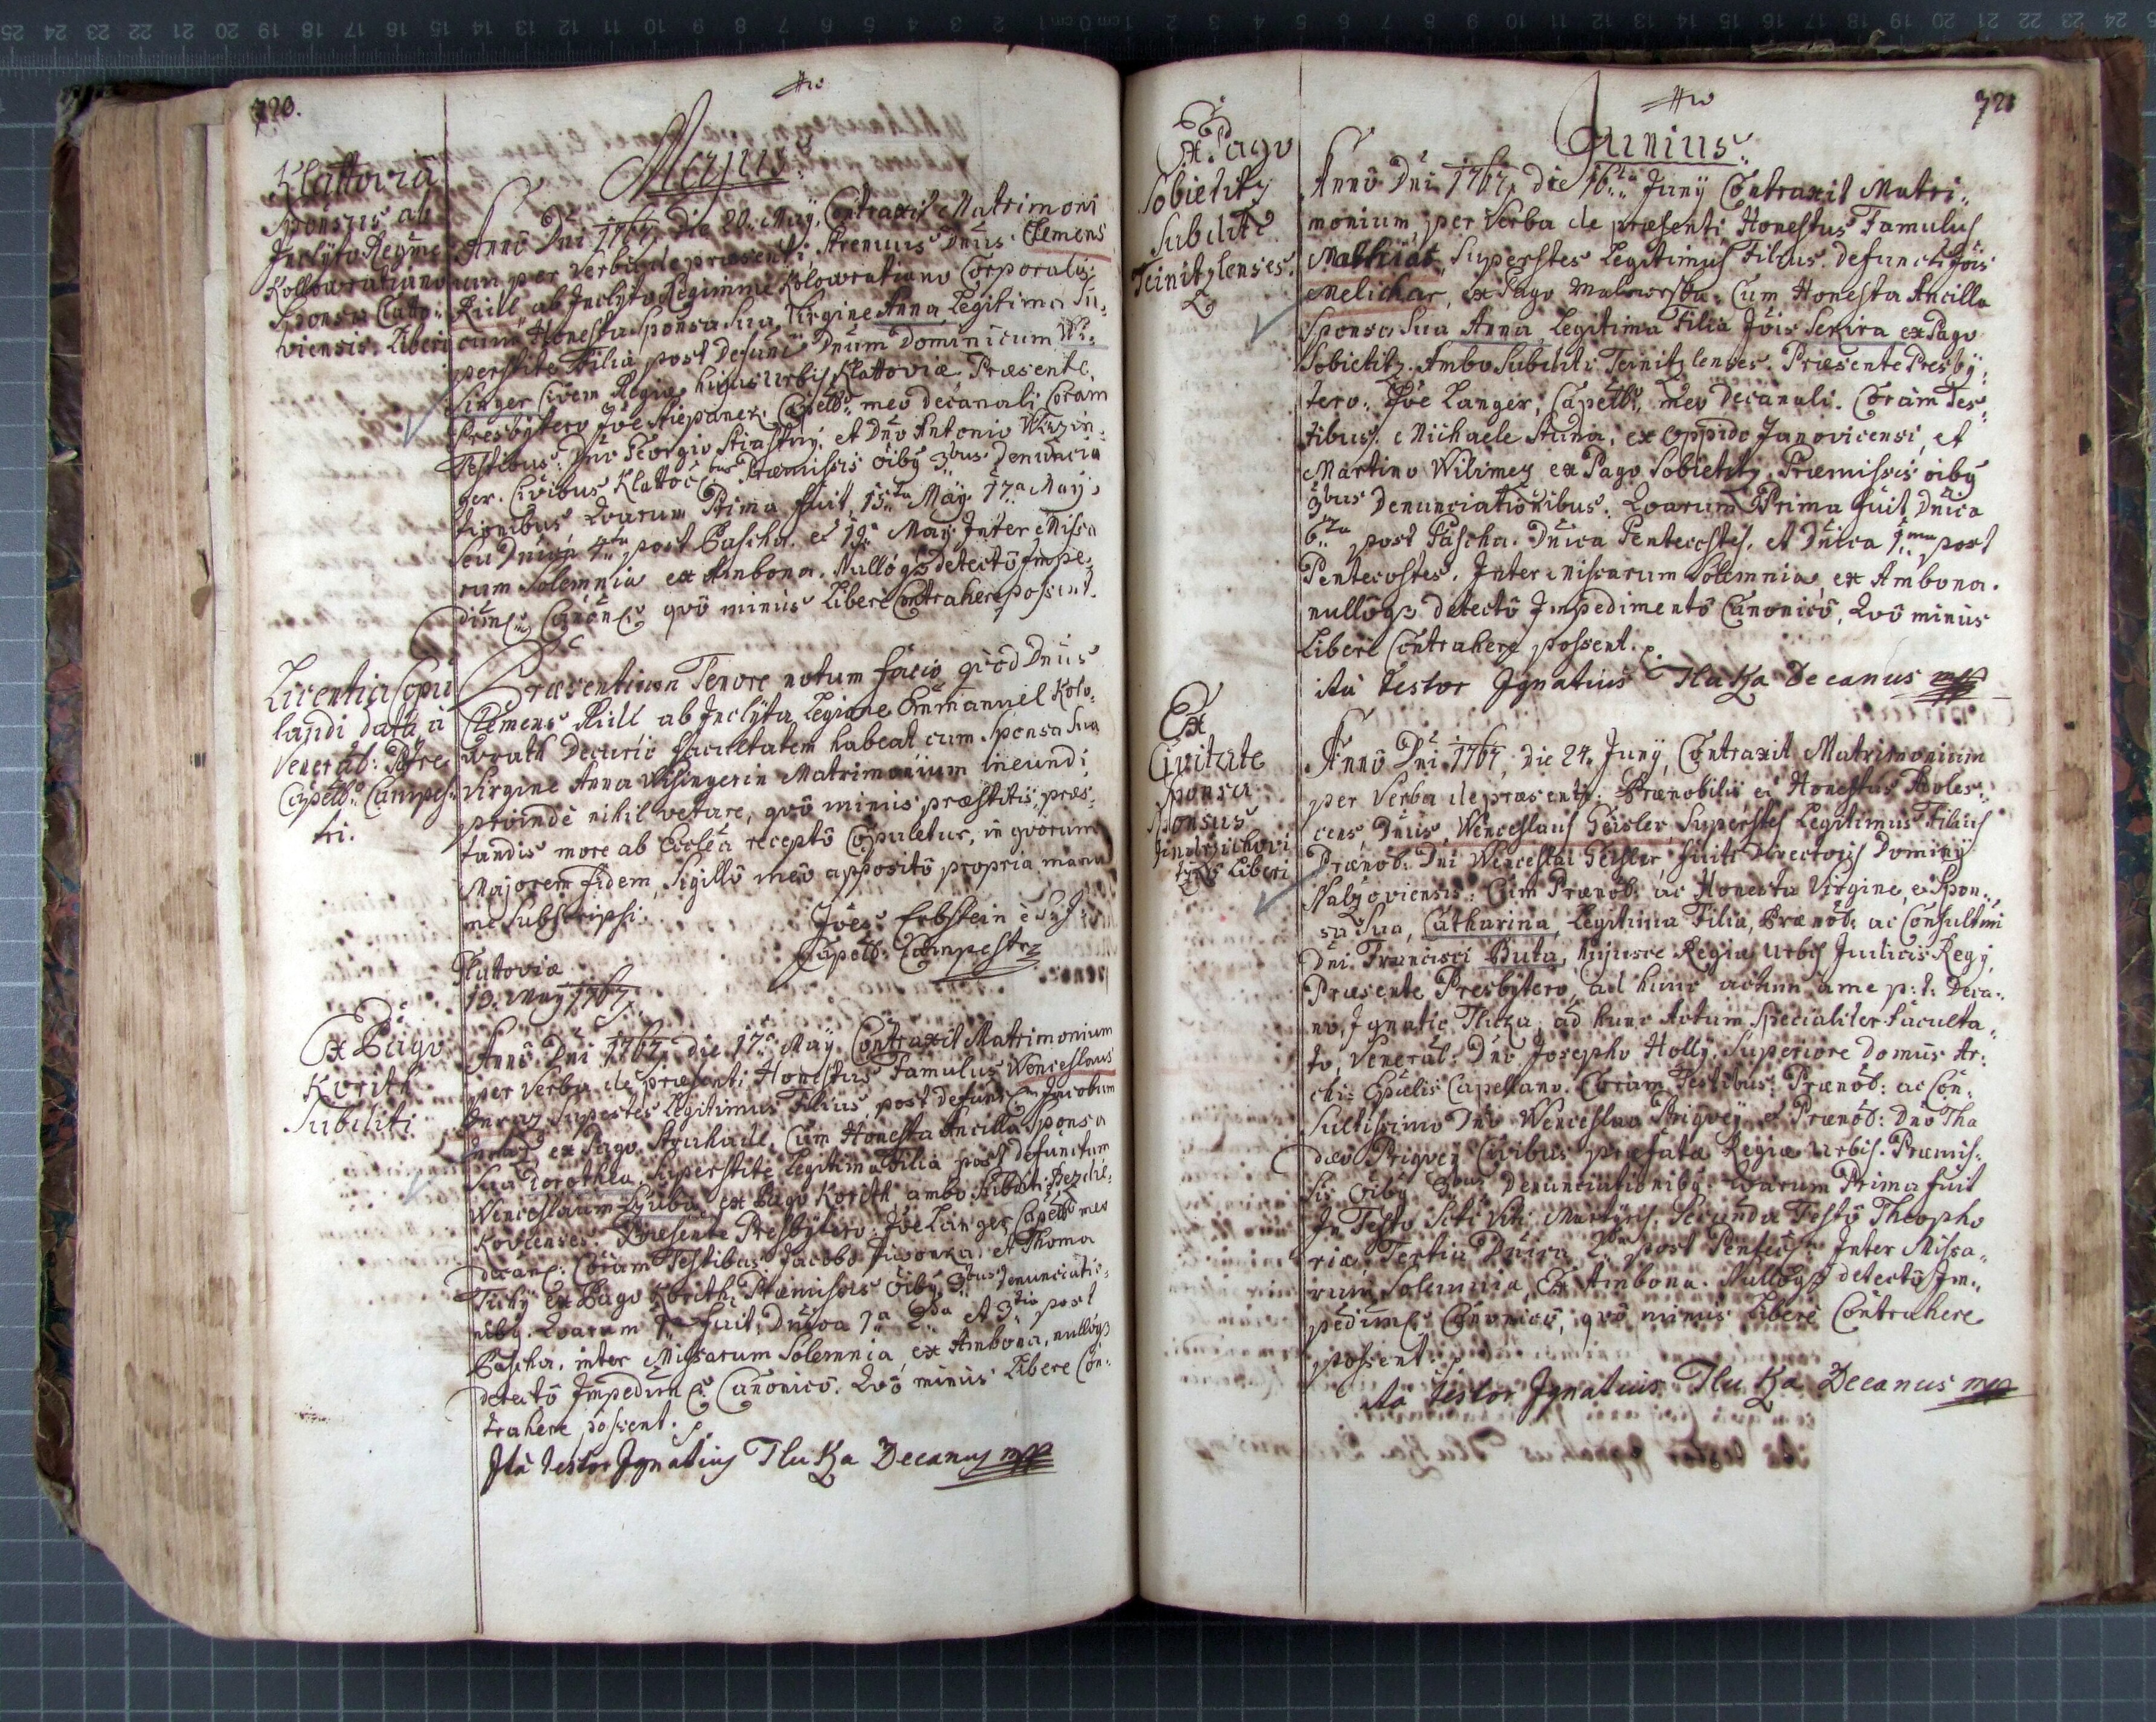 720.
Majus
Klattovia
Sponsus ab
Inclyto Regime
Kollowratiano
Sponsa Clatto:
viensis. Liberi
Anno Dni 1767, die 20. May, Contraxit Matrimoni
um per Verba de præsenti, Strenuus Dnus Clemens
Riill, ab Inclyto Regimine Kolowratiano Corporalis:
cum Honesta Sponsa Sua, Virgine Anna, Legitima Su:
perstite Filia post Defunc: Dnum Dominicum Wi:
singer Civem Regiæ hujus Urbis Klattoviæ Præsente
Presbÿtero Joe Stiepanek, Capell: meo decanali Coram
Testibus: Dno Georgio Stiastny, et Dno Antonio Wisin:
ger. Civibus Klattoc: Præmissis oiby 3bus Denuncia
tionibus Quarum Prima fuit, 15ta Maÿ 17a May,
seu Dnica 4ta post Pascha. et 19a May Inter Missa
rum Solemnia ex Ambona. Nulloq3 detecto Impe:
dim: Canon: qvô minus Libere Contrahere possint.
Licentia Copu
landi data à
Venerab: Patre
Capell: Campes:
tri.
Præsentium Tenore notum facio, qvod Dnus
Clemens Riill ab Inclÿta Legione Emmanuel Kolo:
wrath Decurio facultatem habeat cum Sponsa Sua
Virgine Anna Wisingerin Matrimonium ineundi
proinde nihil vetare, qvô minus præstitis præs:
tandis more ab Ecclea receptô Copuletur, in qvorum
Majorem fidem, Sigillô meô appositô propria manu
me Subscripsi.
Joes Erbstein
Capell: Campestr:
Klatoviæ
19. May 1767.
Ex Pago
Korith
Subditi
Annô Dni 1767, die 17. Maÿ Contraxit Matrimonium
per Verba de præsenti Honestus Famulus Wenceslaus
Duraz Supestes Legitimus Filius, post defunc: Jacobum
Duraz ex Pago Struhadl, Cum Honesta Ancilla Sponsa
Sua Dorothea, Superstite Legitima Filia post defunctum
Wenceslaum ex Pago Korith ambo Subditi Bezdie:
kovienses. Præsente Presbÿtero Joe Langer, Capell: meo
decan: Coram Testibus Jacobo et Thoma
Tichÿ ex Pago Korith: Præmissis oiby 3bus Denunciatio:
niby. Quarum 1a fuit, Dnica 1a 2da et 3tia post
Pascha, inter Missarum Solemnia, ex Ambona, nulloq3
detectô Impedim: Canonicô. Qvô minus Libere Con:
trahere possent.
Ita testor Ignatius Tluka Decanus mp
721
Junius
Ex Pago
Sobietitz
Subditi
Teinitzlenses
Annô Dni 1767, die 16ta Junÿ Contraxit Matri:
monium, per Verba de præsenti Honestus Famulus
Mathias, Superstes Legitimus Filius defuncti Jois
Melichar, ex Pago Maloweska: Cum Honesta Ancilla
Sponsa Sua Anna, Legitima Filia Jois Sekira ex Pago
Sobietitz. Ambo Subditi Teinitzlenses. Præsente Presbÿ:
tero: Joe Langer, Capell: meo Decanali. Coram Tes:
tibus: Michaele Stuna, ex Oppido Janovicensi, et
Martino Wilimez ex Pago Sobietitz. Præmissis oiby
3bus Denunciationibus. Quarum Prima fuit Dnica
6ta post Pascha. Dnica Pentecostes, et Dnica 1ma post
Pentecostes. Inter Missarum Solemnia, ex Ambona.
nullôq3 detectô Impedimentô Canonicô, Qvô minus
Libere Contrahere possent.
ita testor Ignatius Tluka Decanus mp
Ex
Civitate
Sponsa
Sponsus
Liberi
Annô Dni 1767, die 24. Junÿ, Contraxit Matrimonium
per Verba de præsenti: Prænobilis ei Honestus Adoles:
cens, Dnus, Wenceslaus Geisler Superstes Legitimus Filius
Prænob: Dni Wenceslai Geisler fuiti Directoris Dominÿ
Nalzoviensis: Cum Prænob: ac Honesta Virgine, e Spon:
sa Sua, Catharina, Legitima Filia, Prænob: ac Consultmi
Dni Francisci Buta, hujusce Regiæ Urbis Judicis Regÿ,
Præsente Presbÿtero, ad hunc actum a me p:t: Deca:
no, Ignatio Tluka, ad hunc Actum Specialiter faculta:
to, Venerab: Dno Josepho Hollÿ, Superiore Domus Ar:
chi: Epâelis Capellano. Coram Testibus: Prænob: ac Con:
sultissimo Dno Wenceslao Prigveÿ et Prænob: Dno Tha
dæo Prigveÿ Civibus præfatæ Regiæ Urbis. Præmis:
sis Oiby 3bus Denunciationiby. Quarum Prima fuit
In Festo Scti Viti Martÿris. Secunda Festô Theopho
riæ. Tertia Dnica 2da post Pentec: Inter Missa:
rum Solemnia, Ex Ambona. Nullôq3 detectô Im:
pedim: Canonicô, qvô minus Libere Contrahere
possent.
ita testor Ignatius Tluka Decanus mp